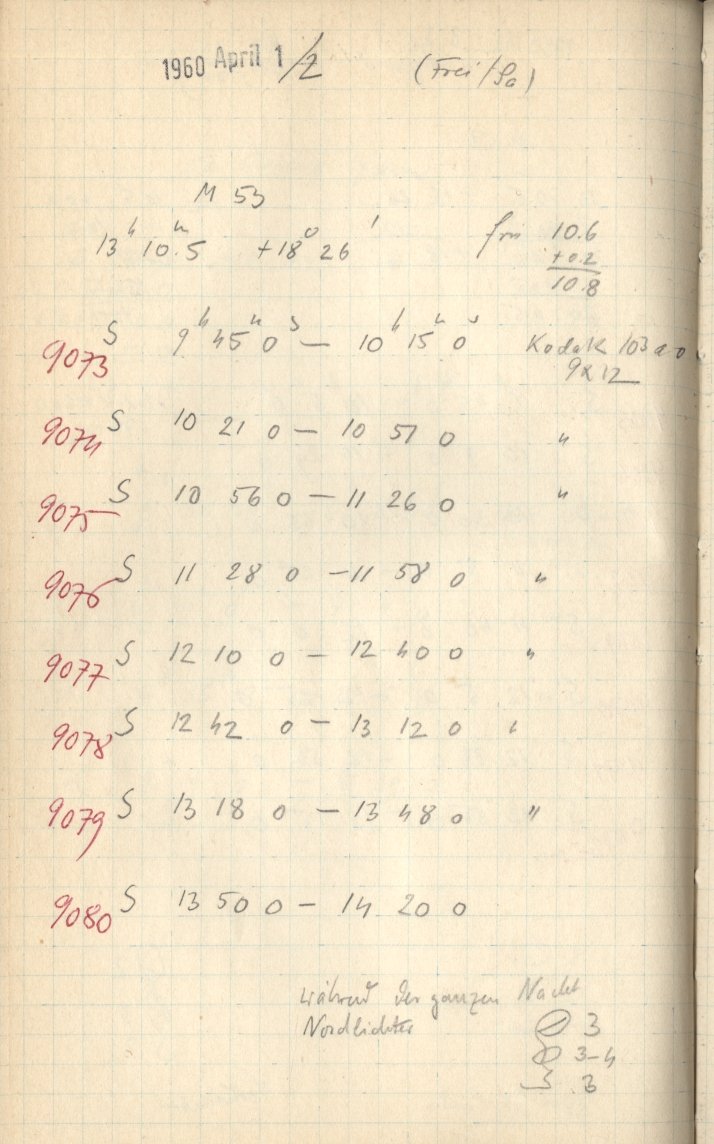 1960 April 1/2 (Frei/Sa)
M 53
13ʰ 10ᵐ.5 +18° 26' 10.6
+0.2
10.8
9073 S 9ʰ 45ᵐ 0ˢ — 10ʰ 15ᵐ 0ˢ Kodak 103 a-o
9x12
9074 S 10 21 0 — 10 51 0 "
9075 S 10 56 0 — 11 26 0 "
9076 S 11 28 0 — 11 58 0 "
9077 S 12 10 0 — 12 40 0 "
9078 S 12 42 0 — 13 12 0 "
9079 S 13 18 0 — 13 48 0 "
9080 S 13 50 0 — 14 20 0
während der ganzen Nacht
Nordlichter
3
3-4
3